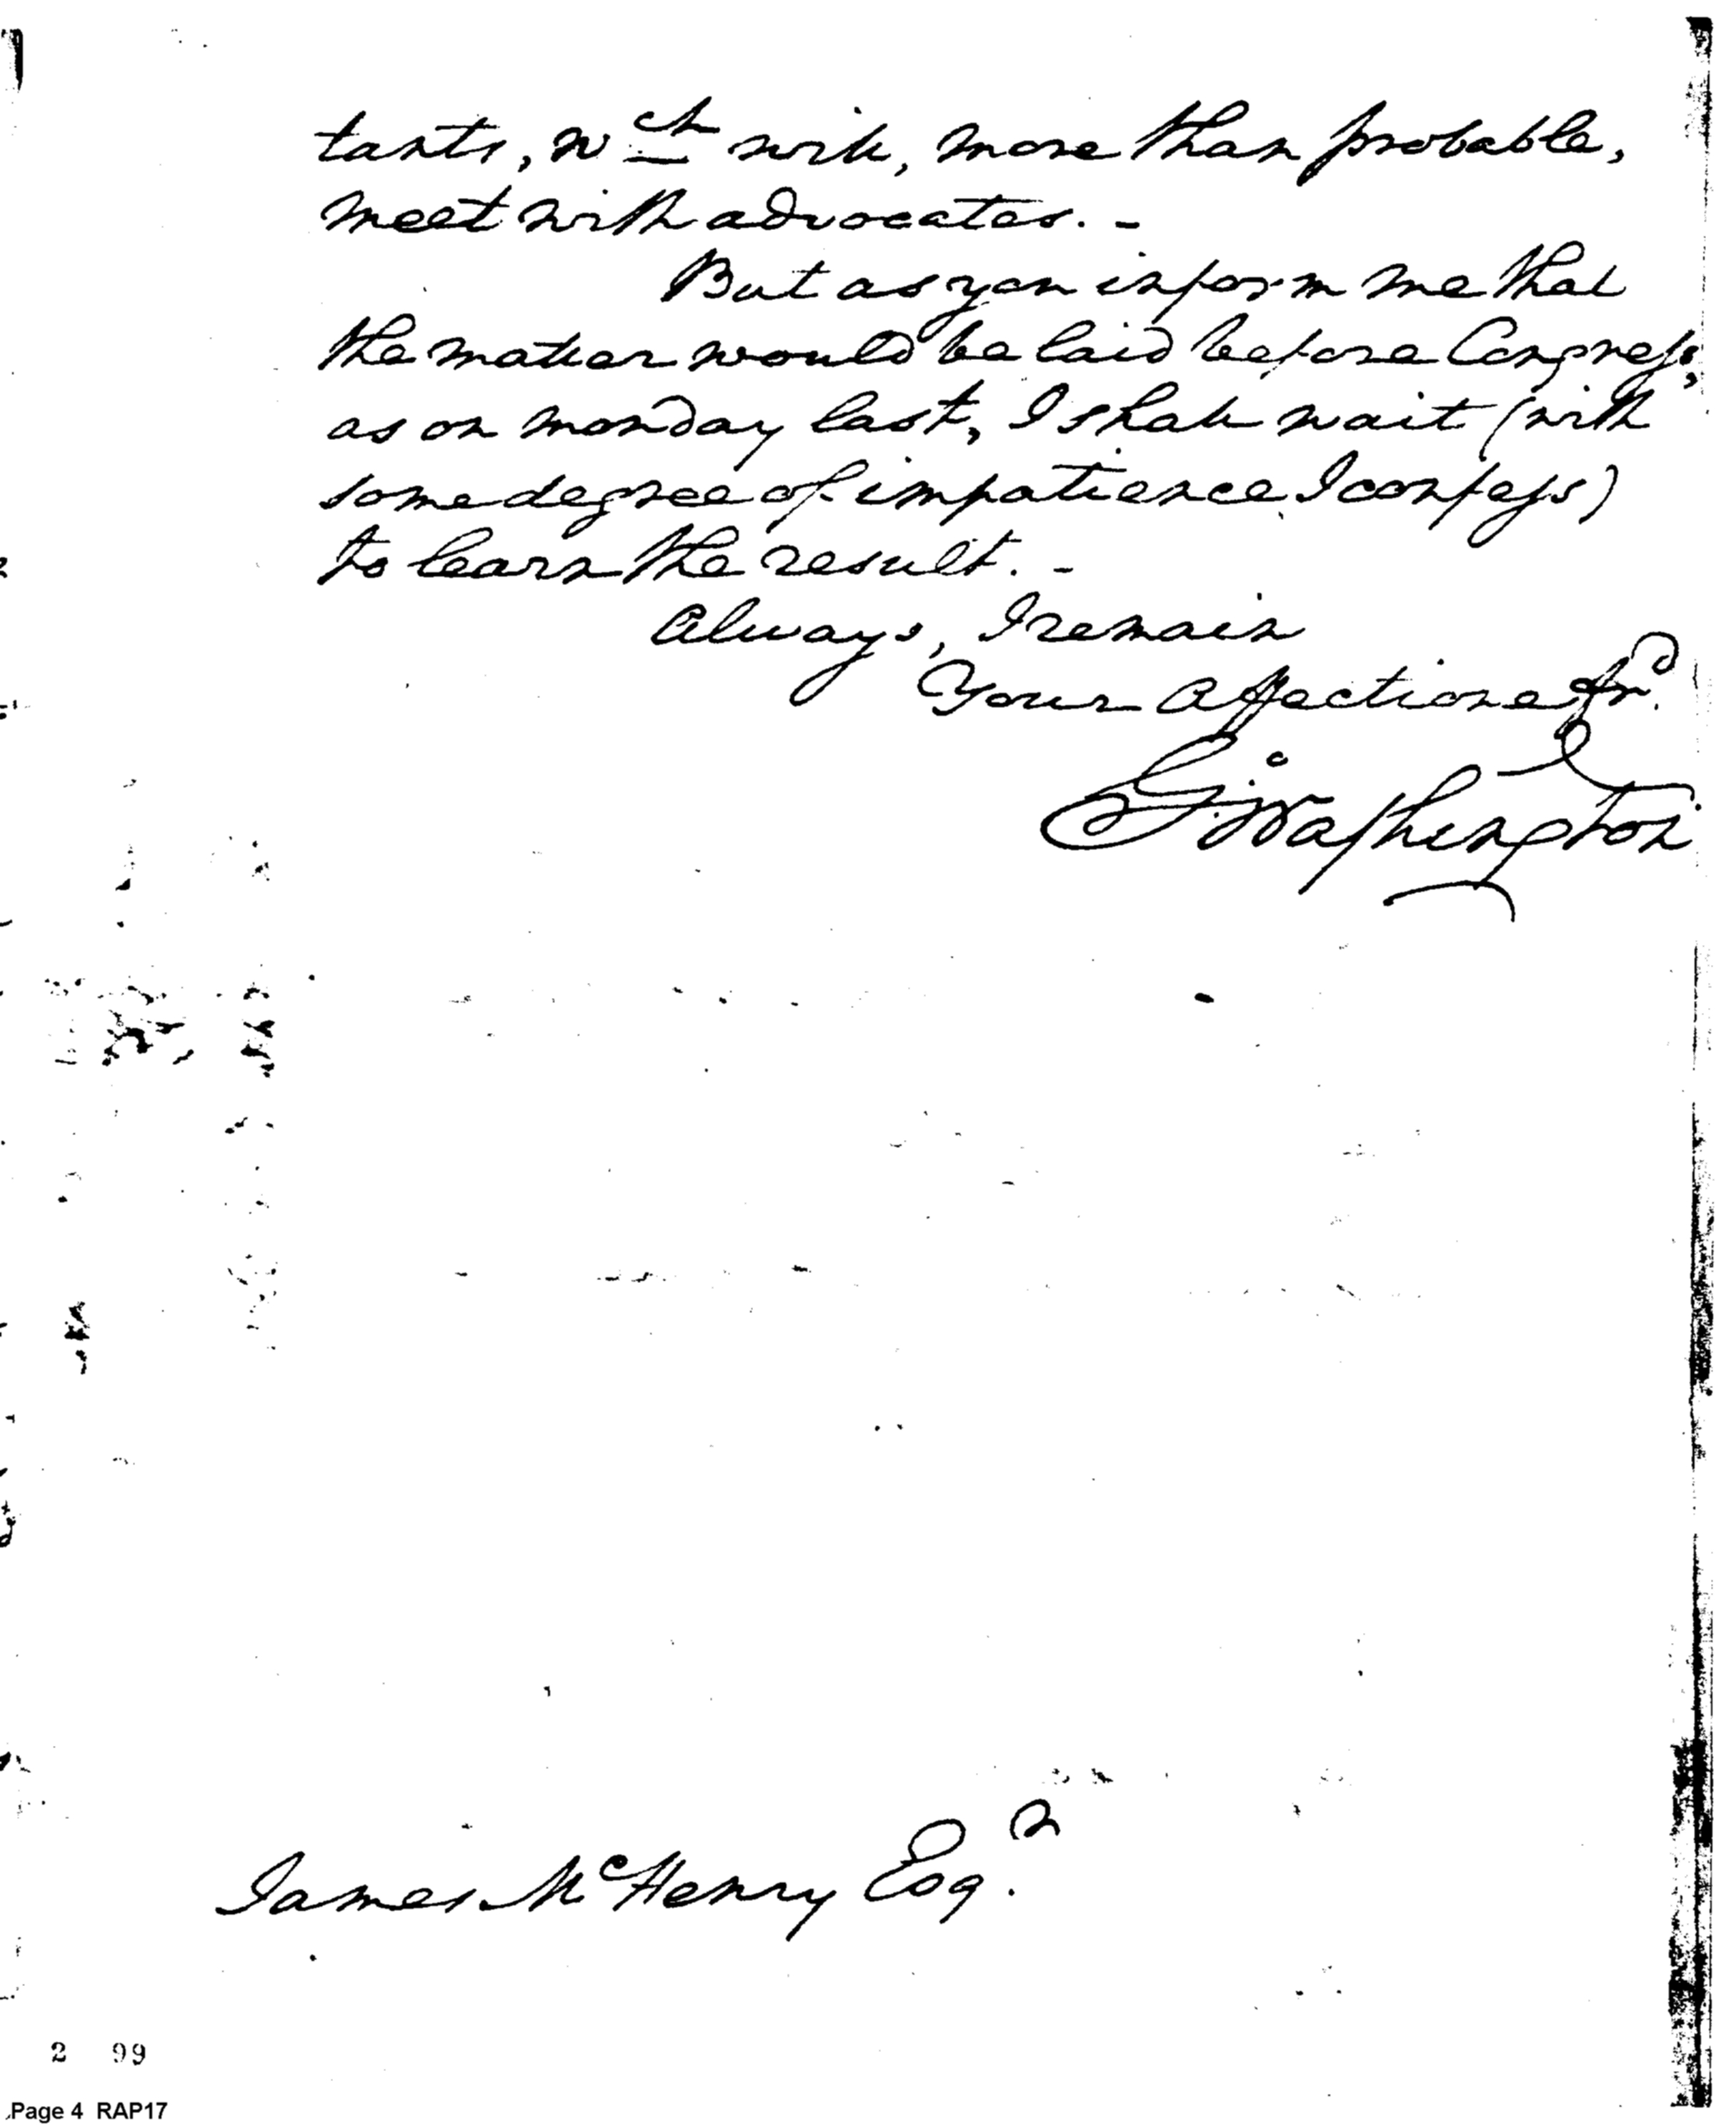 tants, wch will, more than probable,
meet with advocates. -
But as you inform me that
the matter would be laid before Congress,
as on monday last, I shall wait (with
some degree of impatience I confess)
to learn the result. -
Always, I remain
Your Affectionate
Go: Washington
James McHenry Esqr.
2 99
Page 4 RAP17